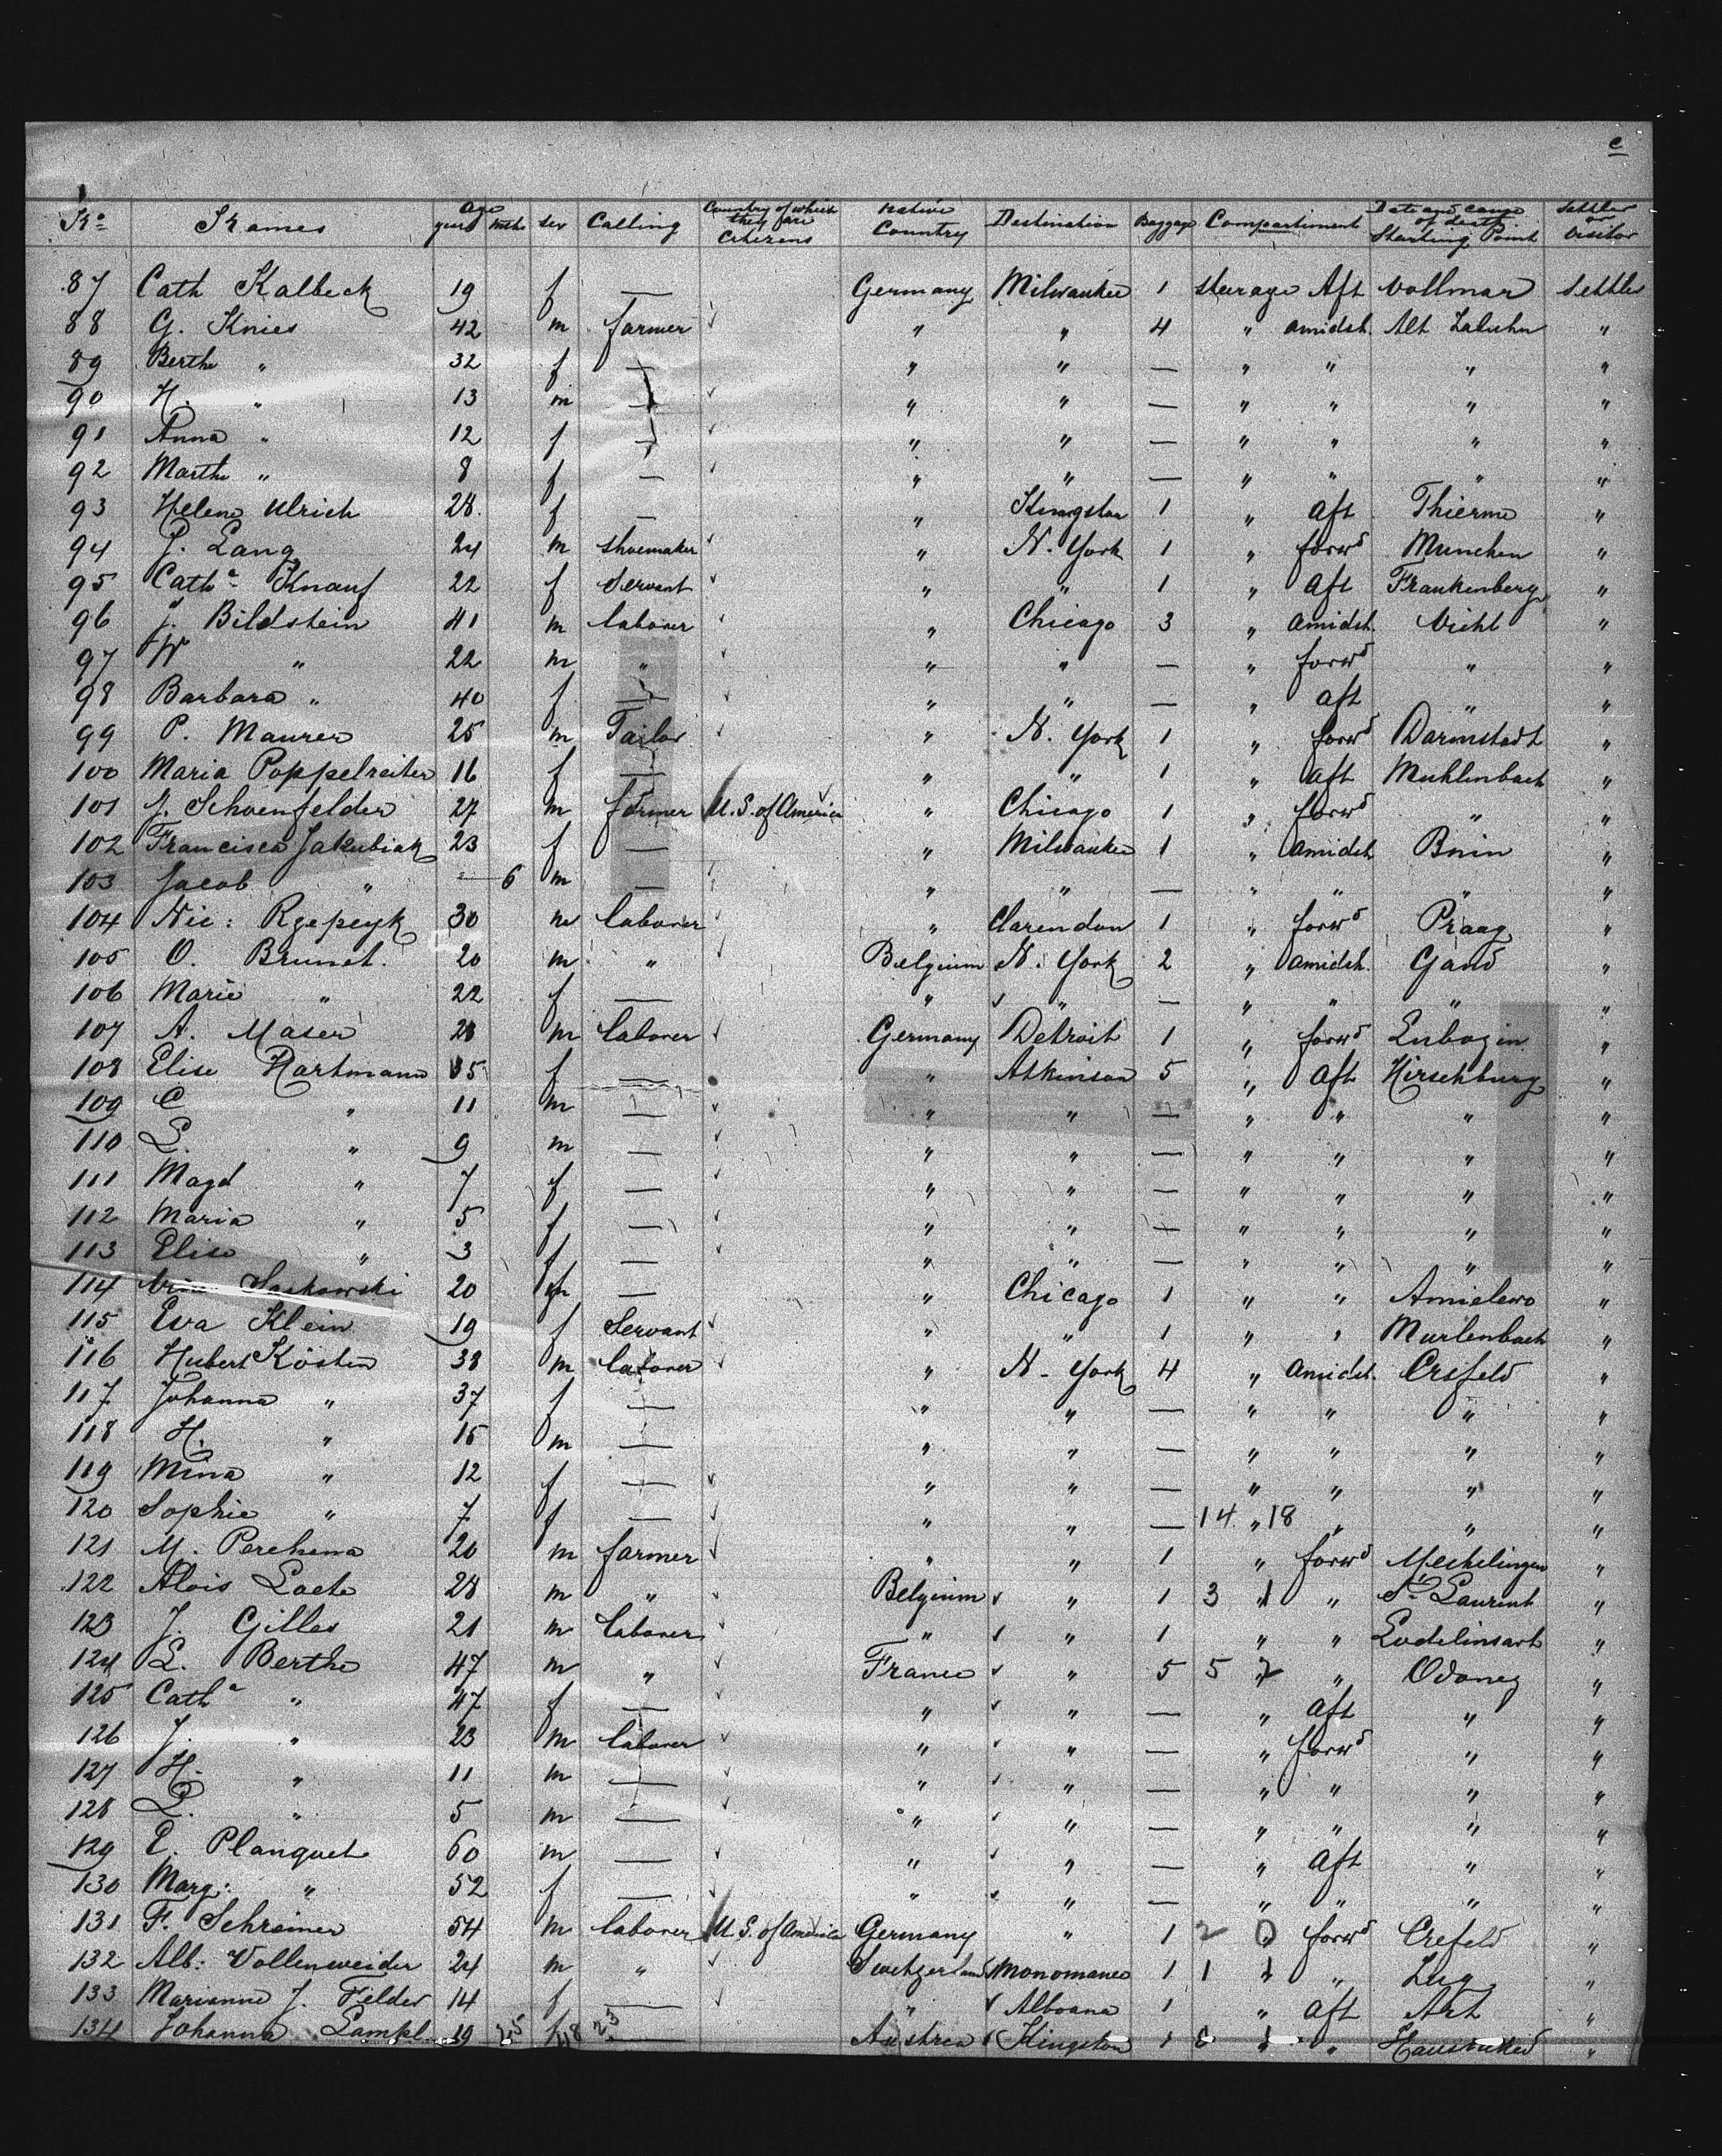 c
No Names age years mths sex Calling Country of which they are Citizens Native Country Destination Baggage Compartiment Date and cause of death Starting Point Settler or Visitor
87 Cath Kalbeck 19 f — Germany Milwaukee 1 steerage Aft Vollmar Settler
88 G. Knies 42 m farmer " " 4 " amidsh. Alt "
89 Berthe " 32 f — " " — " " " "
90 H. " 13 m — " " — " " " "
91 Anna " 12 f — " " — " " " "
92 Marthe " 8 f — " " — " " " "
93 Helene Ulrich 28 f — " Kingston 1 " aft "
94 P. Lang 24 m shoemaker " N. York 1 " forwd Munchen "
95 Catha Knauf 22 f Servant " " 1 " aft Frankenberg "
96 J. Bildstein 41 m laborer " Chicago 3 " amidsh. Vicht "
97 W " 22 m " " " — " forwd " "
98 Barbara " 40 f — " " — " aft " "
99 P. Maurer 25 m Tailor " N. York 1 " forwd Darmstadt "
100 Maria Poppelreiter 16 f — " " 1 " aft Muhlenbach "
101 J. Schoenfelder 27 m farmer U.S. of America " Chicago 1 " forwd " "
102 Francisca Jakubiak 23 f — " Milwaukee 1 " amidsh Bnin "
103 Jacob " — 6 m — " " — " " " "
104 Nic: 30 m laborer " Clarendon 1 " forwd Praag "
105 O. Brunet. 20 m " Belgium N. York 2 " amidsh. Gand "
106 Marie " 22 f — " " — " " " "
107 A. Maser 28 m laborer Germany Detroit 1 " forwd "
108 Elise Hartmann 35 f — " Atkinson 5 " aft Hirschburg "
109 C " 11 m — " " — " " " "
110 L. " 9 m — " " — " " " "
111 Magd " 7 f — " " — " " " "
112 Maria " 5 f — " " — " " " "
113 Elise " 3 f — " " — " " " "
114 20 — " Chicago 1 " " "
115 Eva Klein 19 f Servant " " 1 " " Murlenbach "
116 Hubert Kösten 38 m laborer " N. York 4 " amidsh. Crefeld "
117 Johanna " 37 f — " " — " " " "
118 H. " 15 m — " " — " " " "
119 Mina " 12 f — " " — " " " "
120 Sophie " 7 f — " " — 14 " 18 " " "
121 M. 20 m farmer " " 1 " forwd Mechelingen "
122 Alois 28 m " Belgium " 1 3 1 " St Laurent "
123 J. Gilles 21 m laborer " " 1 " " Lodelinsart "
124 L. Berthe 47 m " France " 5 5 2 " "
125 Catha " 47 f — " " — " aft " "
126 J. " 23 m laborer " " — " forwd " "
127 H. " 11 m — " " — " " " "
128 L. " 5 m — " " — " " " "
129 E. Planquet 60 m — " " — " aft " "
130 Marg: " 52 f — " " — " " " "
131 F. Schreiner 54 m laborer U.S. of America Germany " 1 2 0 forwd Crefeld "
132 Alb: Vollenweider 24 m " Switzerland Monomanee 1 1 1 " Zug "
133 Marianne J. Felder 14 f — " 1 " aft Art "
134 Johanna 19 25 f 48 23 — Austria Kingston 1 "